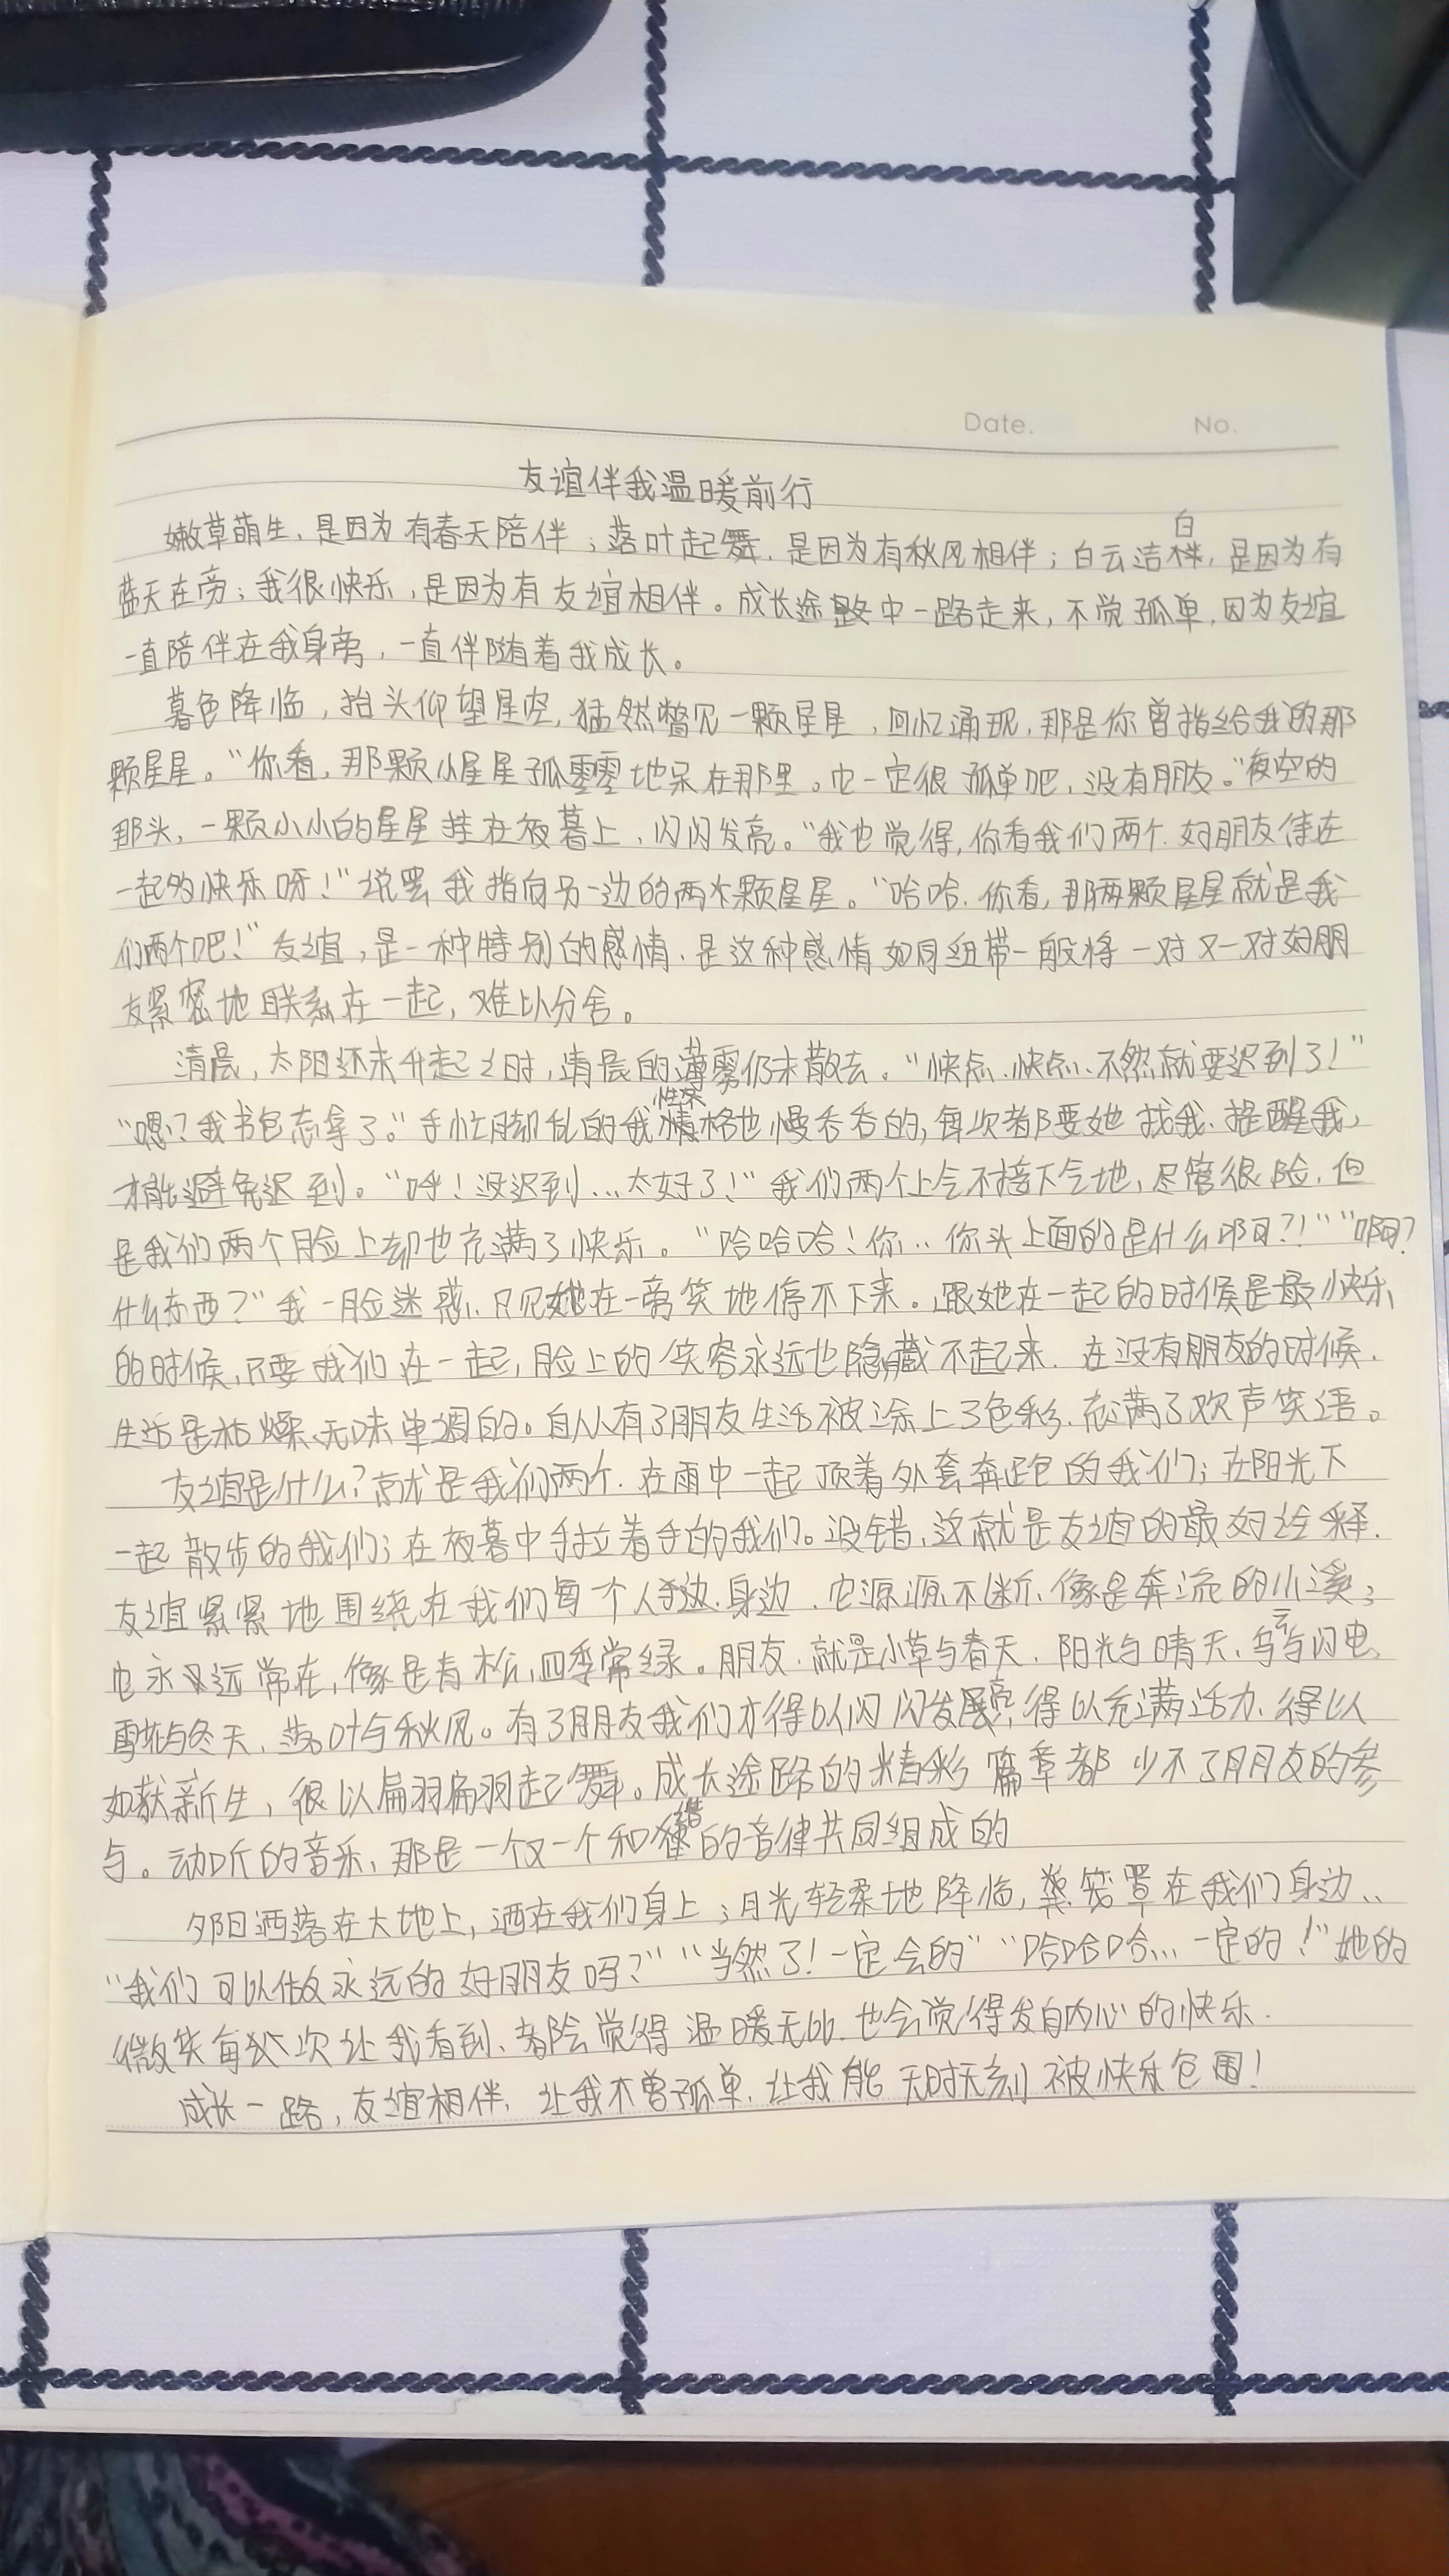 Date. No.
友谊伴我温暖前行
嫩草萌生，是因为有春天陪伴；落叶起舞，是因为有秋风相伴；白云洁白，是因为有
蓝天在旁；我很快乐，是因为有友谊相伴。成长途路中一路走来，不觉孤单，因为友谊
一直陪伴在我身旁，一直伴随着我成长。
暮色降临，抬头仰望星空，猛然瞥见一颗星星，回忆涌现，那是你曾指给我的那
颗星星。“你看，那颗小星星孤零零地呆在那里。它一定很孤单吧，没有朋友。”夜空的
那头，一颗小小的星星挂在夜幕上，闪闪发亮。“我也觉得，你看我们两个好朋友待在
一起多快乐呀！”说罢我指向另一边的两颗星星。“哈哈，你看，那两颗星星就是我
们两个吧！”友谊，是一种特别的感情，是这种感情如同纽带一般将一对又一对好朋
友紧密地联系在一起，难以分舍。
清晨，太阳还未升起之时，清晨的薄雾仍未散去。“快点、快点、不然就要迟到了！”
“嗯？我书包忘拿了。”手忙脚乱的我性格也慢吞吞的，每次都要她找我、提醒我，
才能避免迟到。“呼！没迟到…太好了！”我们两个上气不接下气地，尽管很险，但
是我们两个脸上却也充满了快乐。“哈哈哈！你..你头上面的是什么啊？！”“啊？
什么东西？”我一脸迷惑、只见她在一旁笑地停不下来。跟她在一起的时候是最快乐
的时候，只要我们在一起，脸上的笑容永远也隐藏不起来．在没有朋友的时候．
生活是枯燥、无味单调的。自从有了朋友生活被涂上了色彩、充满了欢声笑语。
友谊是什么？就是我们两个．在雨中一起顶着外套奔跑的我们；在阳光下
一起散步的我们；在夜幕中手拉着手的我们。没错，这就是友谊的最好诠释．
友谊紧紧地围绕在我们每个人手边、身边．它源源不断、像是奔流的小溪；
它永远常在，像是青松，四季常绿。朋友．就是小草与春天．阳光与晴天，乌云与闪电
雪花与冬天、落叶与秋风。有了朋友我们才得以闪闪发亮，得以充满活力、得以
如获新生，得以扁羽扁羽起舞。成长途路的精彩篇章都少不了朋友的参
与。动听的音乐，那是一个又一个和谐的音律共同组成的
夕阳洒落在大地上，洒在我们身上；月光轻柔地降临，笼罩在我们身边..
“我们可以做永远的好朋友吗？”“当然了！一定会的”“哈哈哈...一定的！”她的
微笑每次让我看到、都会觉得温暖无比．也会觉得发自内心的快乐．
成长一路，友谊相伴，让我不曾孤单．让我能无时无刻被快乐包围！